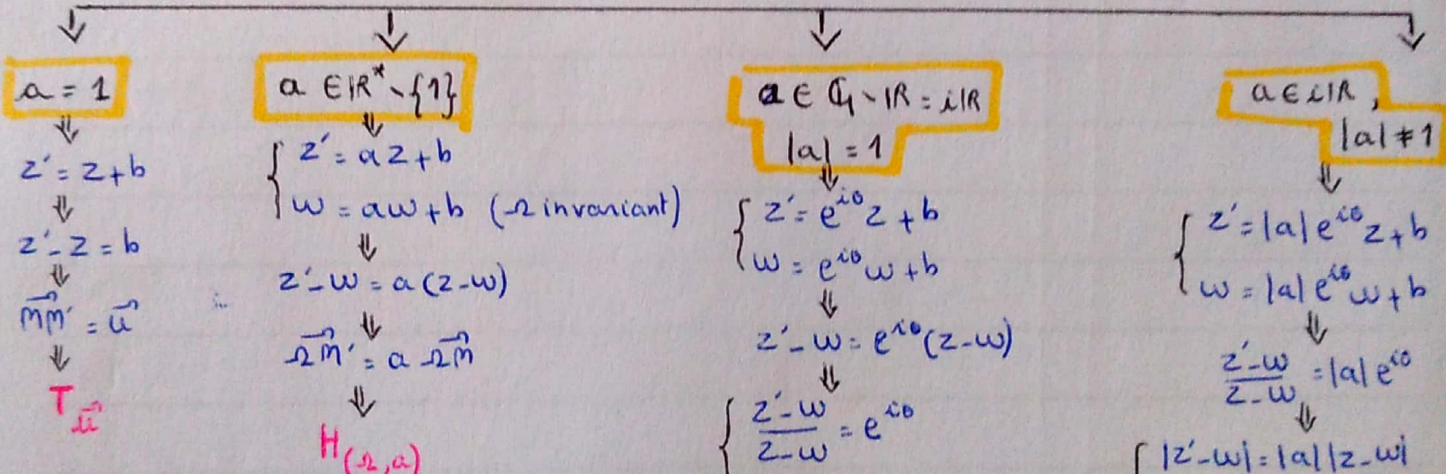 a = 1
⇓
z' = z + b
⇓
z' - z = b
⇓
MM' = u
⇓
T_u
a ∈ IR* \ {1}
⇓
{ z' = az + b
w = aw + b (Ω invariant)
⇓
z' - w = a (z - w)
⇓
ΩM' = a ΩM
⇓
H(Ω,a)
a ∈ ℂ \ IR = iIR
|a| = 1
⇓
{ z' = e^{iθ} z + b
w = e^{iθ} w + b
⇓
z' - w = e^{iθ} (z - w)
⇓
{ (z' - w)/(z - w) = e^{iθ}
a ∈ iIR,
|a| ≠ 1
⇓
{ z' = |a| e^{iθ} z + b
w = |a| e^{iθ} w + b
⇓
(z' - w)/(z - w) = |a| e^{iθ}
⇓
{ |z' - w| = |a| |z - w|